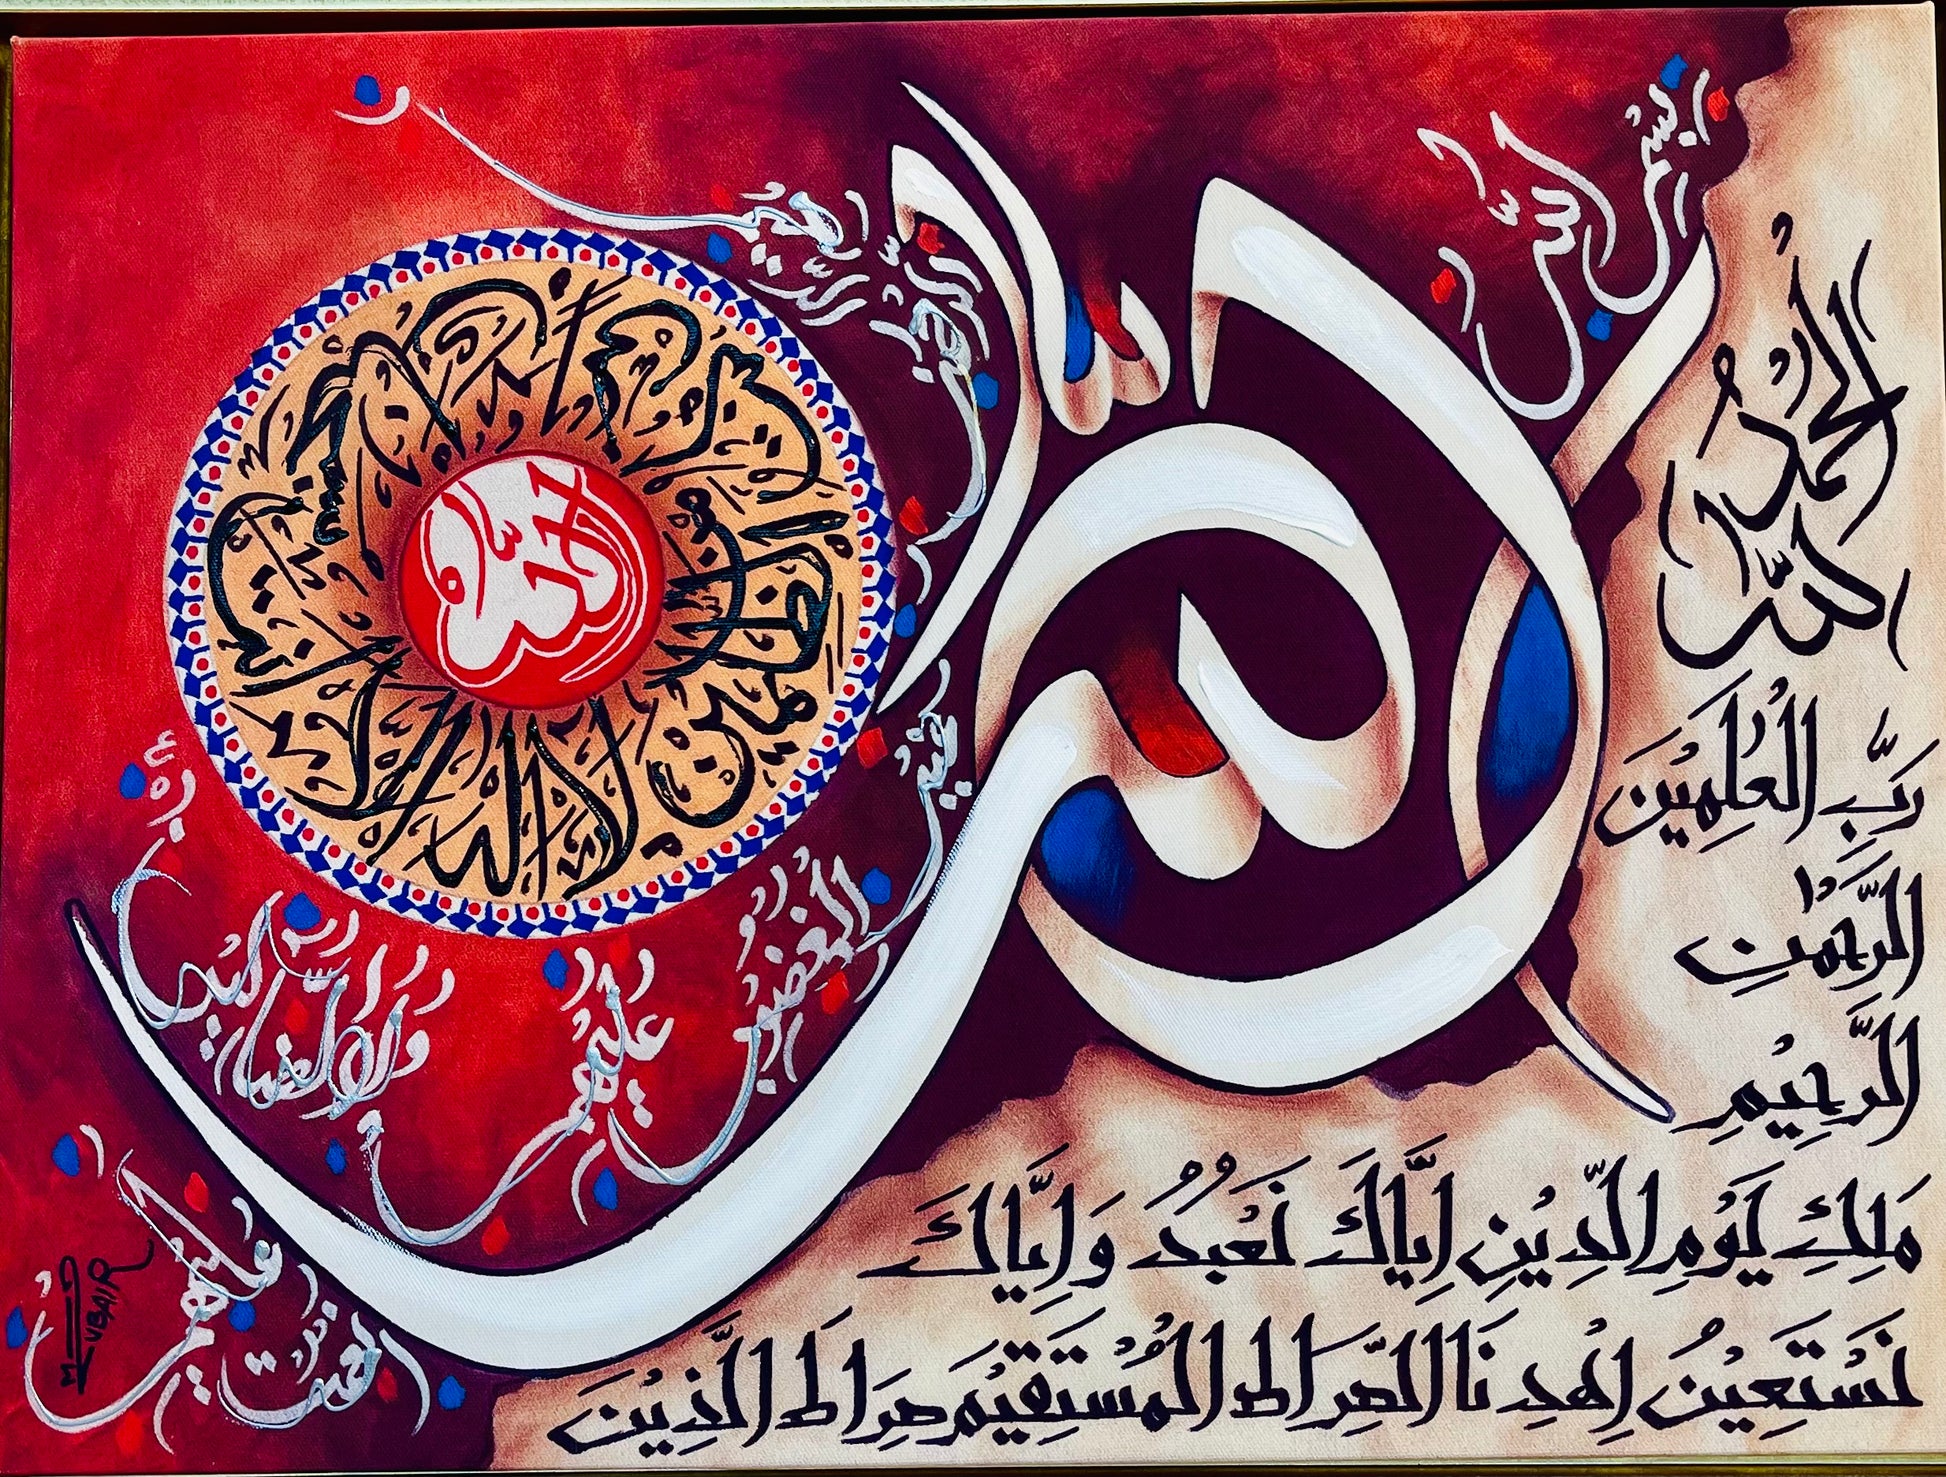 بِسْمِ اللّٰهِ
الرَّحْمٰنِ الرَّحِيْمِ
اَلْحَمْدُ
لِلّٰهِ
رَبِّ الْعٰلَمِيْنَ
الرَّحْمٰنِ
الرَّحِيْمِ
مٰلِكِ يَوْمِ الدِّيْنِ اِيَّاكَ نَعْبُدُ وَاِيَّاكَ
نَسْتَعِيْنُ اِهْدِنَا الصِّرَاطَ الْمُسْتَقِيْمَ صِرَاطَ الَّذِيْنَ
اَنْعَمْتَ
عَلَيْهِمْ
غَيْرِ
الْمَغْضُوْبِ
عَلَيْهِمْ
وَلَا الضَّآلِّيْنَ
الله
لا اله الا
الظالمين
M ZUBAIR